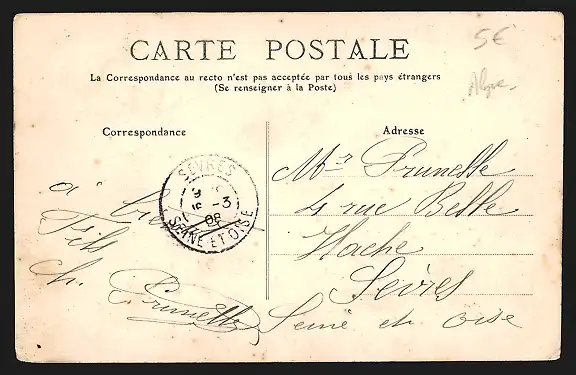 CARTE POSTALE
5€
La Correspondance au recto n'est pas acceptée par tous les pays étrangers
(Se renseigner à la Poste)
Correspondance
Adresse
SEVRES
16 -3
08
SEINE ET OISE
à
Fils
Ch. Prunelle
Mr Prunelle
4 rue Belle
Hache
Sèvres
Seine et Oise